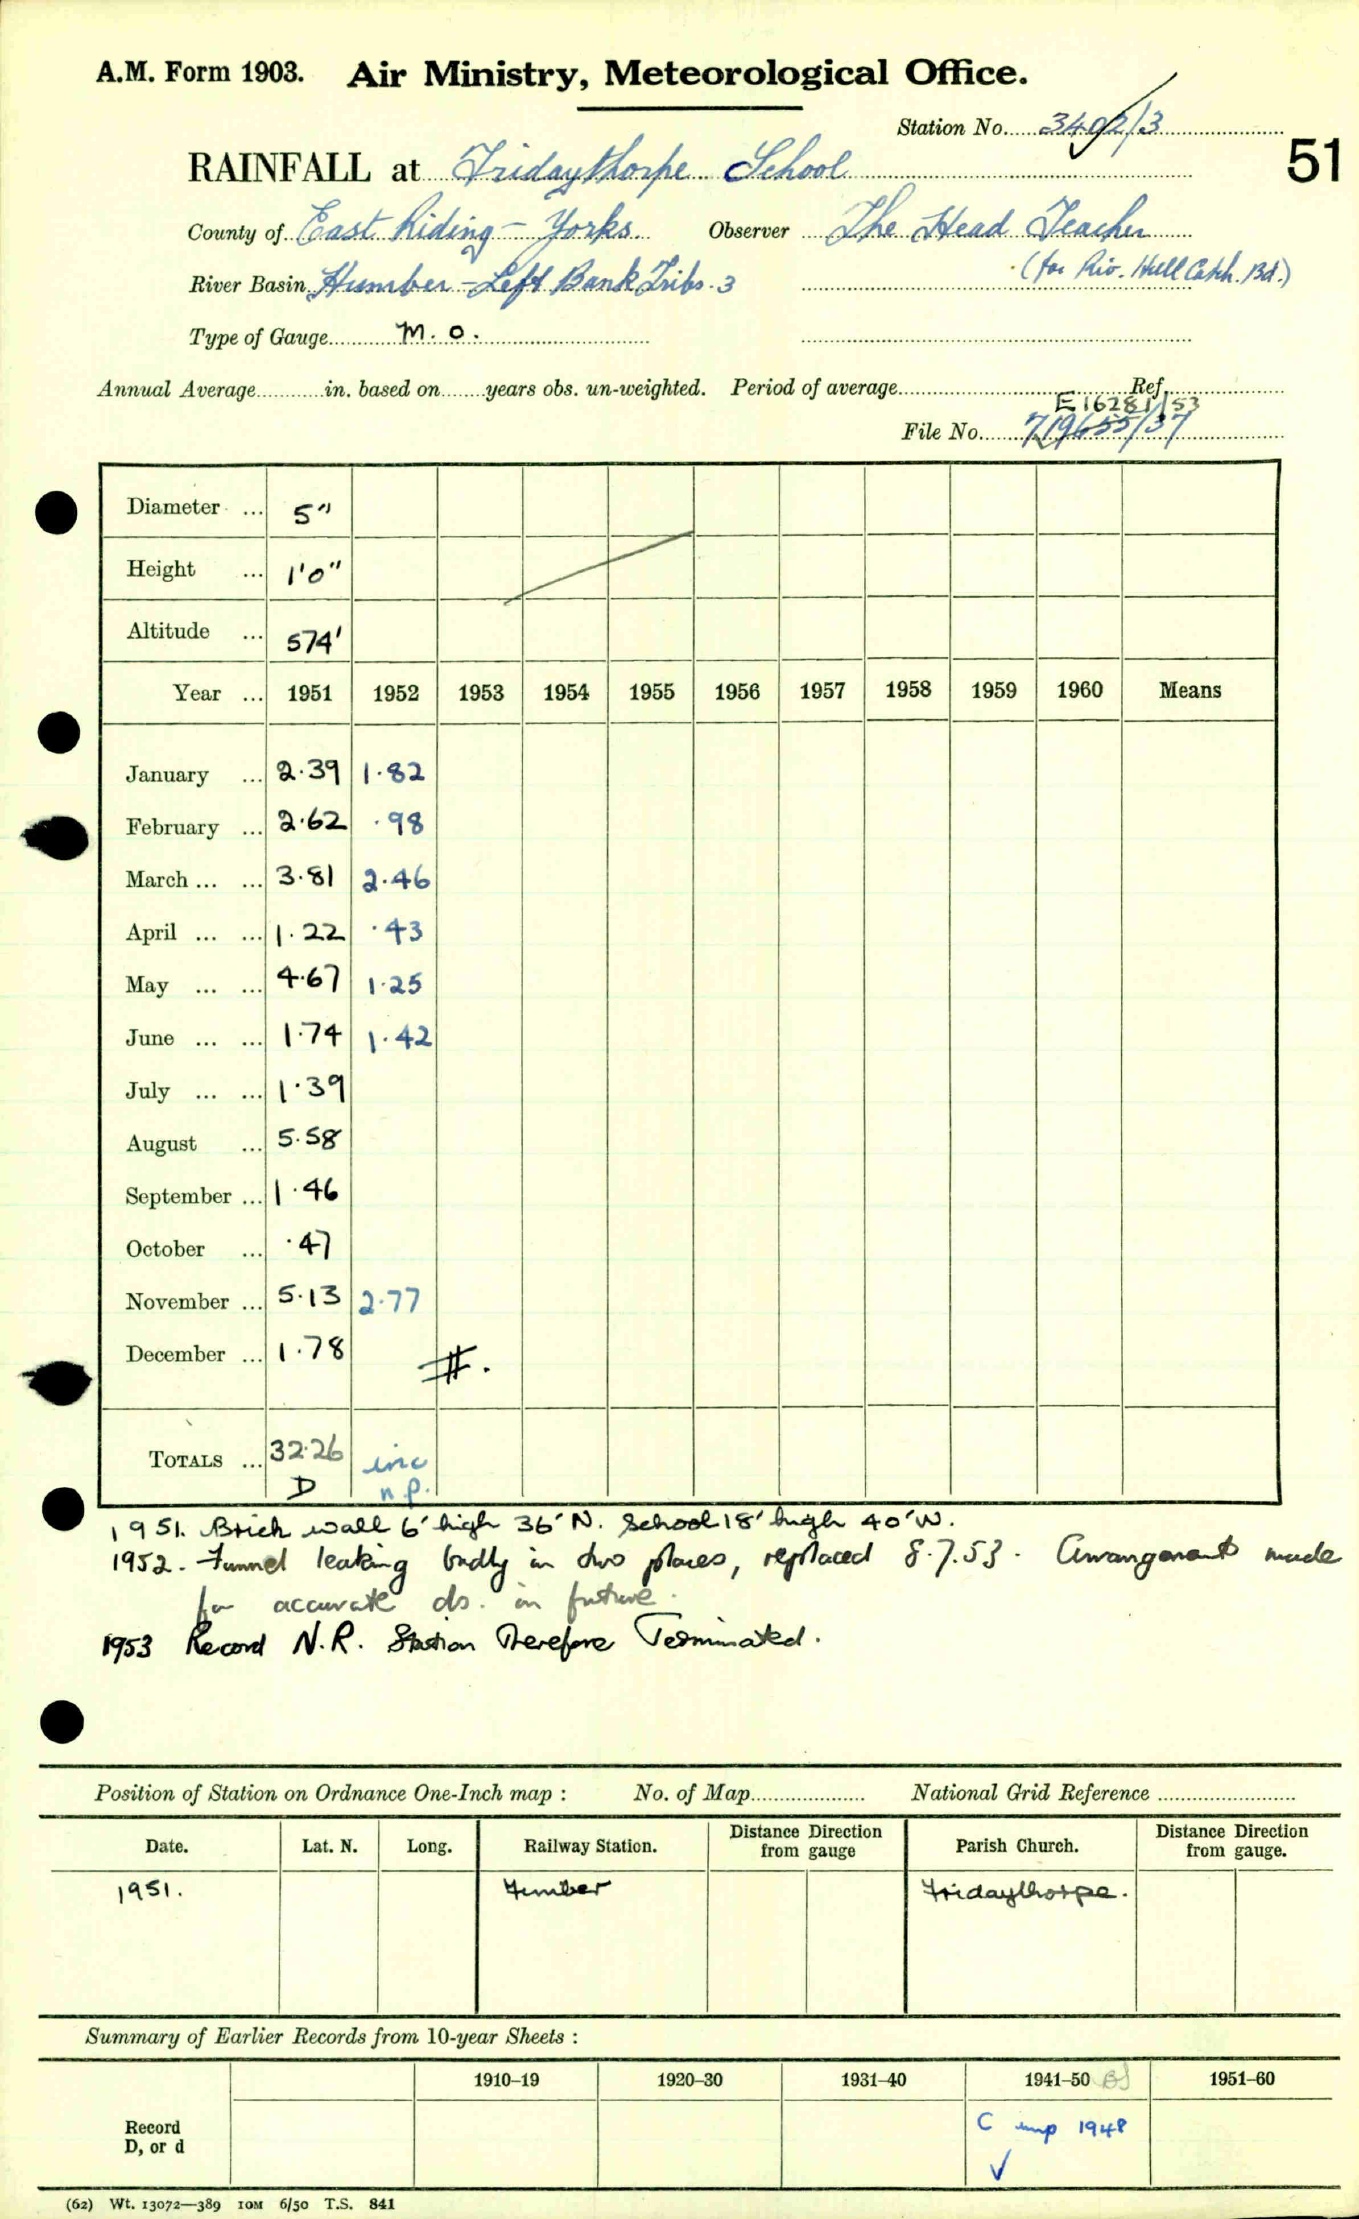 A.M. Form 1903. Air Ministry, Meteorological Office.
Station No. 3492/3
51
RAINFALL at Fridaythorpe School
County of East Riding - Yorks. Observer The Head Teacher
River Basin Humber - Left Bank Tribs. 3 (for Riv. Hull Catch. Bd.)
Type of Gauge M.O.
Annual Average in. based on years obs. un-weighted. Period of average Ref.
E16281/53
File No. 719655/37
Diameter ... 5"
Height ... 1'0"
Altitude ... 574'
Year ... 1951 1952 1953 1954 1955 1956 1957 1958 1959 1960 Means
January ... 2.39 1.82
February ... 2.62 .98
March ... ... 3.81 2.46
April ... ... 1.22 .43
May ... ... 4.67 1.25
June ... ... 1.74 1.42
July ... ... 1.39
August ... 5.58
September ... 1.46
October ... .47
November ... 5.13 2.77
December ... 1.78 #.
TOTALS ... 32.26 inc
D n.p.
1951. Brick wall 6' high 36' N. School 18' high 40' W.
1952. Funnel leaking badly in two places, replaced 8.7.53. Arrangements made
for accurate ds. in future.
1953 Record N.R. Station Therefore Terminated.
Position of Station on Ordnance One-Inch map : No. of Map National Grid Reference
Date. Lat. N. Long. Railway Station. Distance Direction from gauge Parish Church. Distance Direction from gauge.
1951. Fimber Fridaythorpe.
Summary of Earlier Records from 10-year Sheets :
1910–19 1920–30 1931–40 1941–50 1951–60
Record
D, or d
C imp 1948
✓
(62) Wt. 13072—389 10M 6/50 T.S. 841